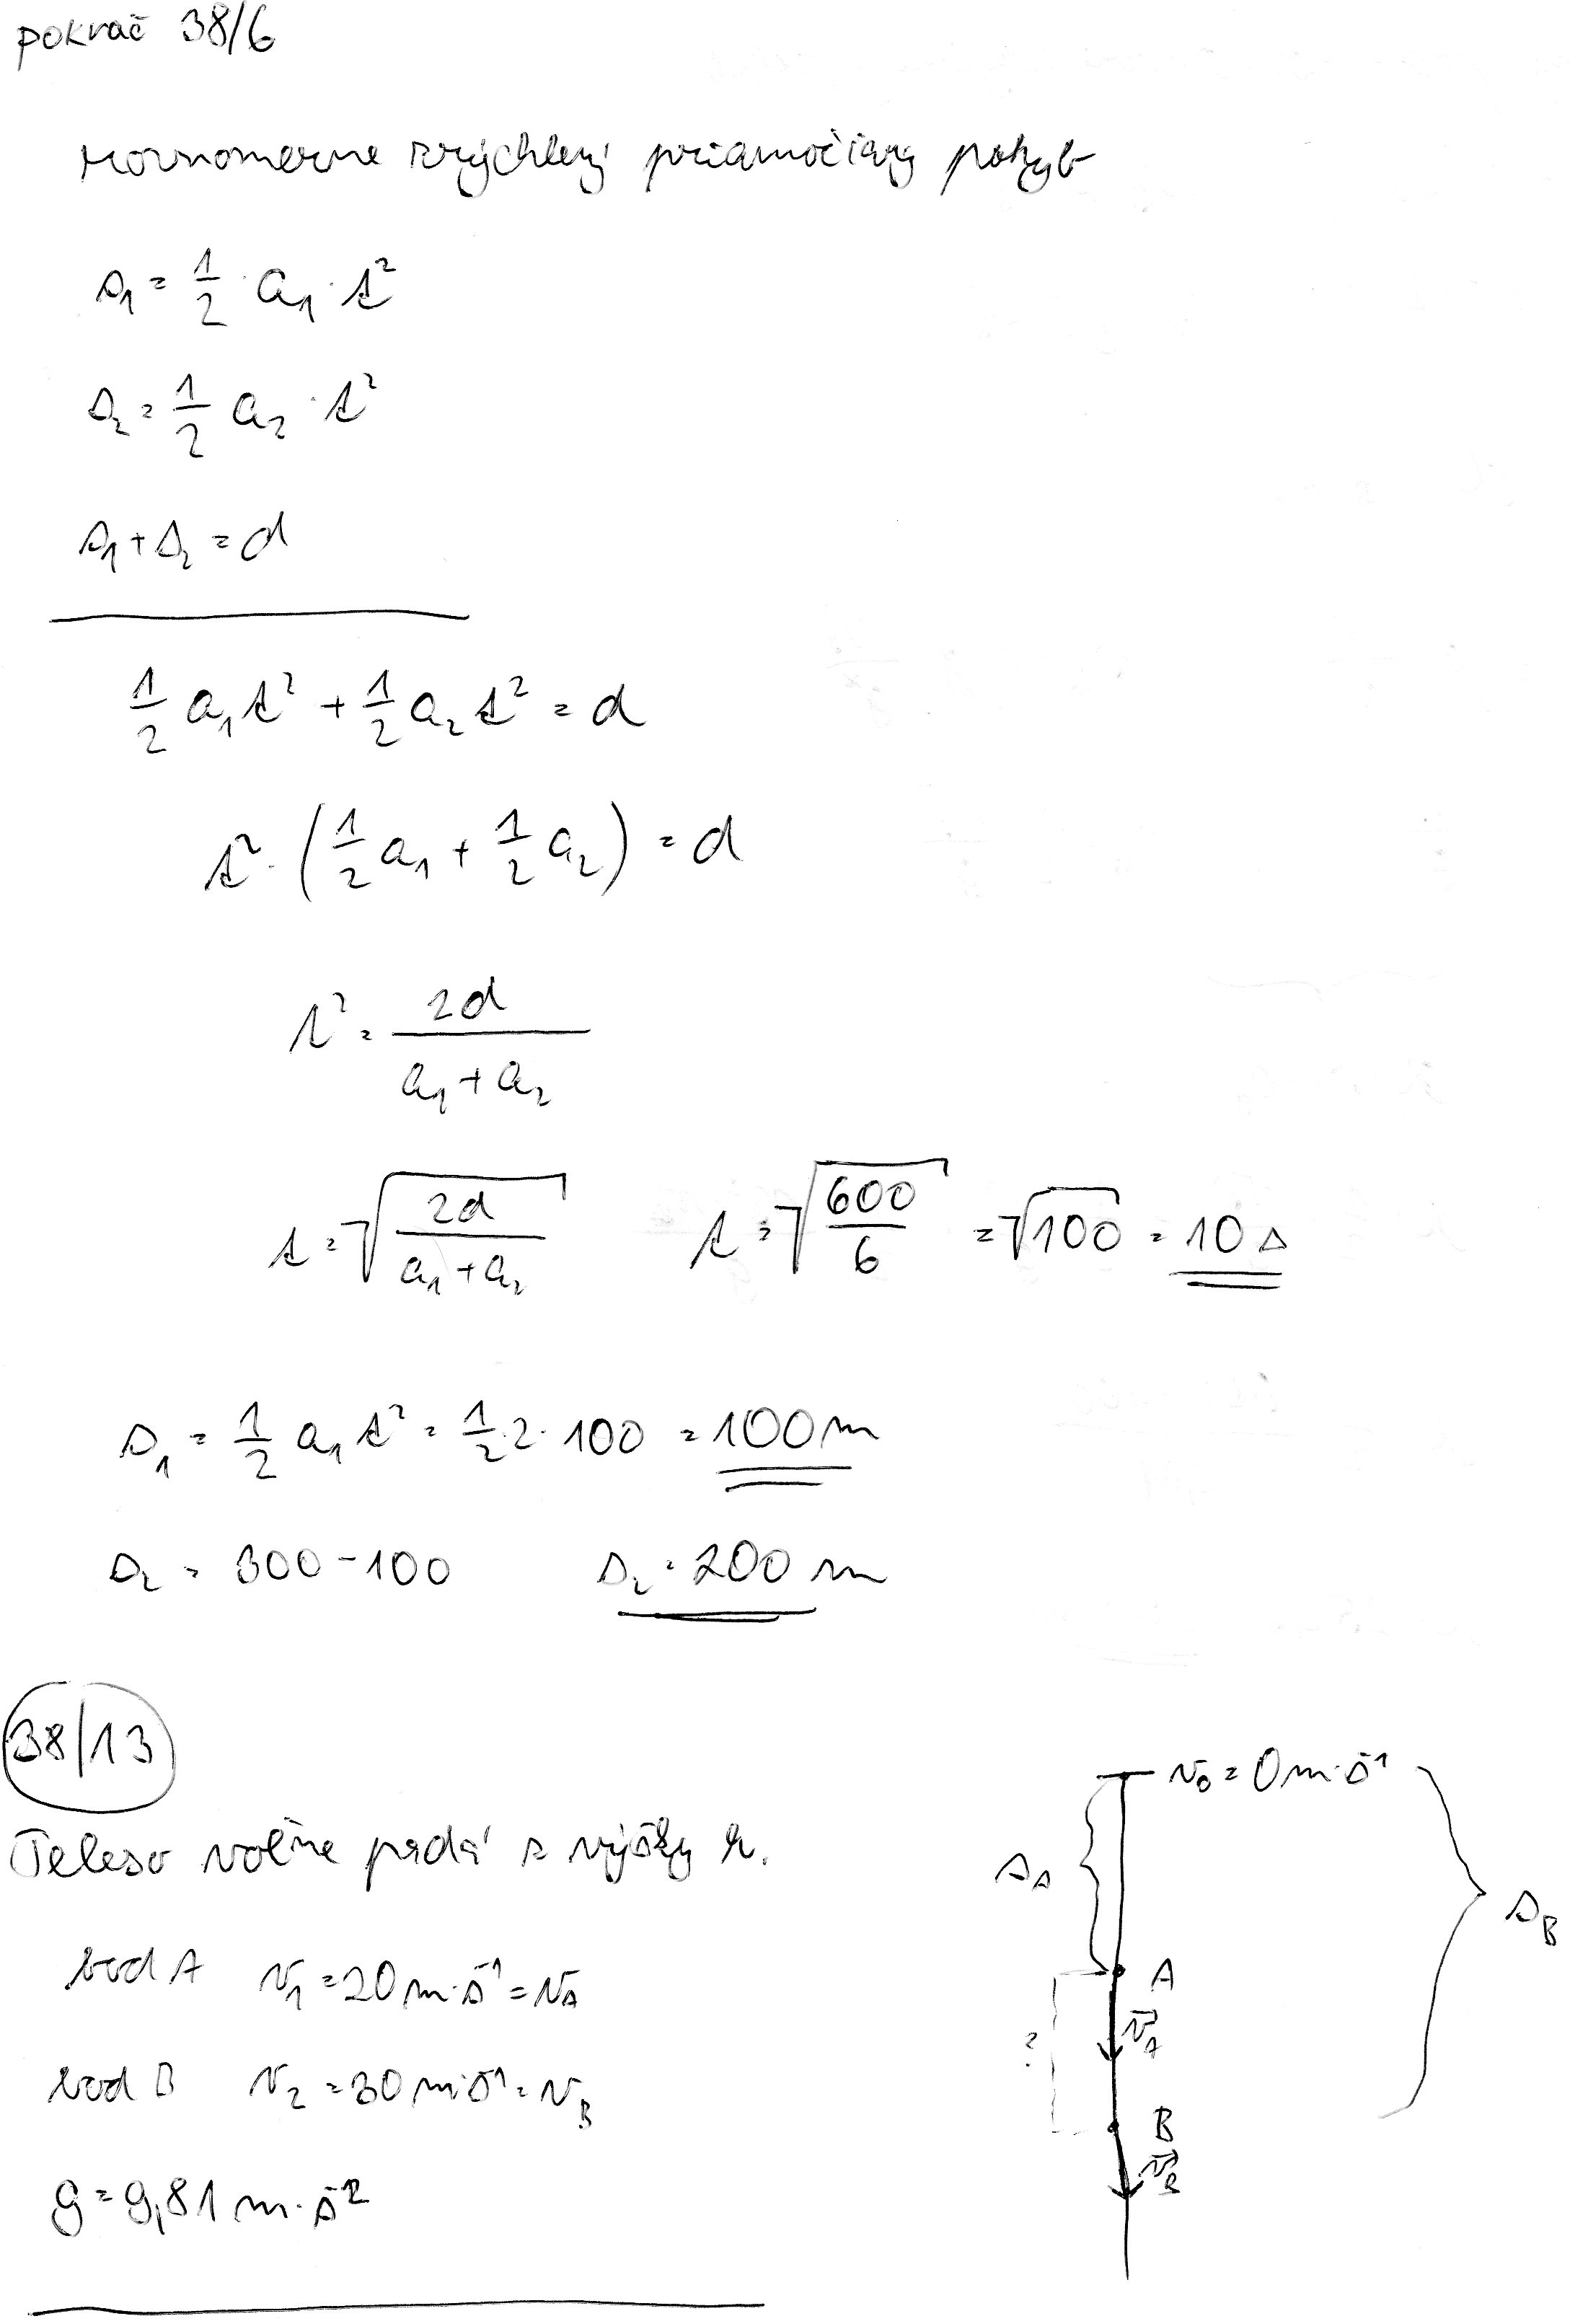 pokrač 38/6
rovnomerne zrýchlený priamočiary pohyb
s₁ = 1/2 · a₁ · t²
s₂ = 1/2 a₂ · t²
s₁ + s₂ = d
1/2 a₁ t² + 1/2 a₂ t² = d
t² · (1/2 a₁ + 1/2 a₂) = d
t² = 2d / (a₁ + a₂)
t = √(2d / (a₁ + a₂)) t = √(600/6) = √100 = 10 s
s₁ = 1/2 a₁ t² = 1/2 · 2 · 100 = 100 m
s₂ = 300 - 100 s₂ = 200 m
38/13
v₀ = 0 m·s⁻¹
Teleso voľne padá z výšky h.
s_A
s_B
bod A v₁ = 20 m·s⁻¹ = v_A
A
v⃗_A
?
bod B v₂ = 30 m·s⁻¹ = v_B
B
v⃗_B
g = 9,81 m·s⁻²